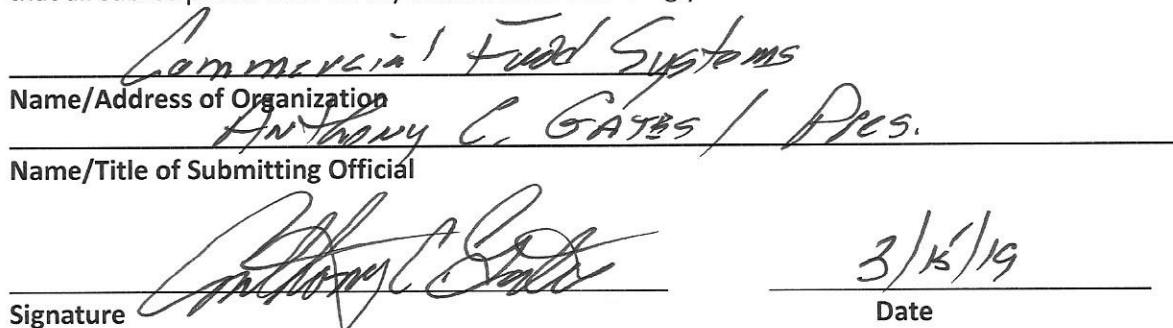 Commercial Food Systems
Name/Address of Organization
Anthony C. GATES / Pres.
Name/Title of Submitting Official
Anthony C Gates
3/15/19
Signature
Date